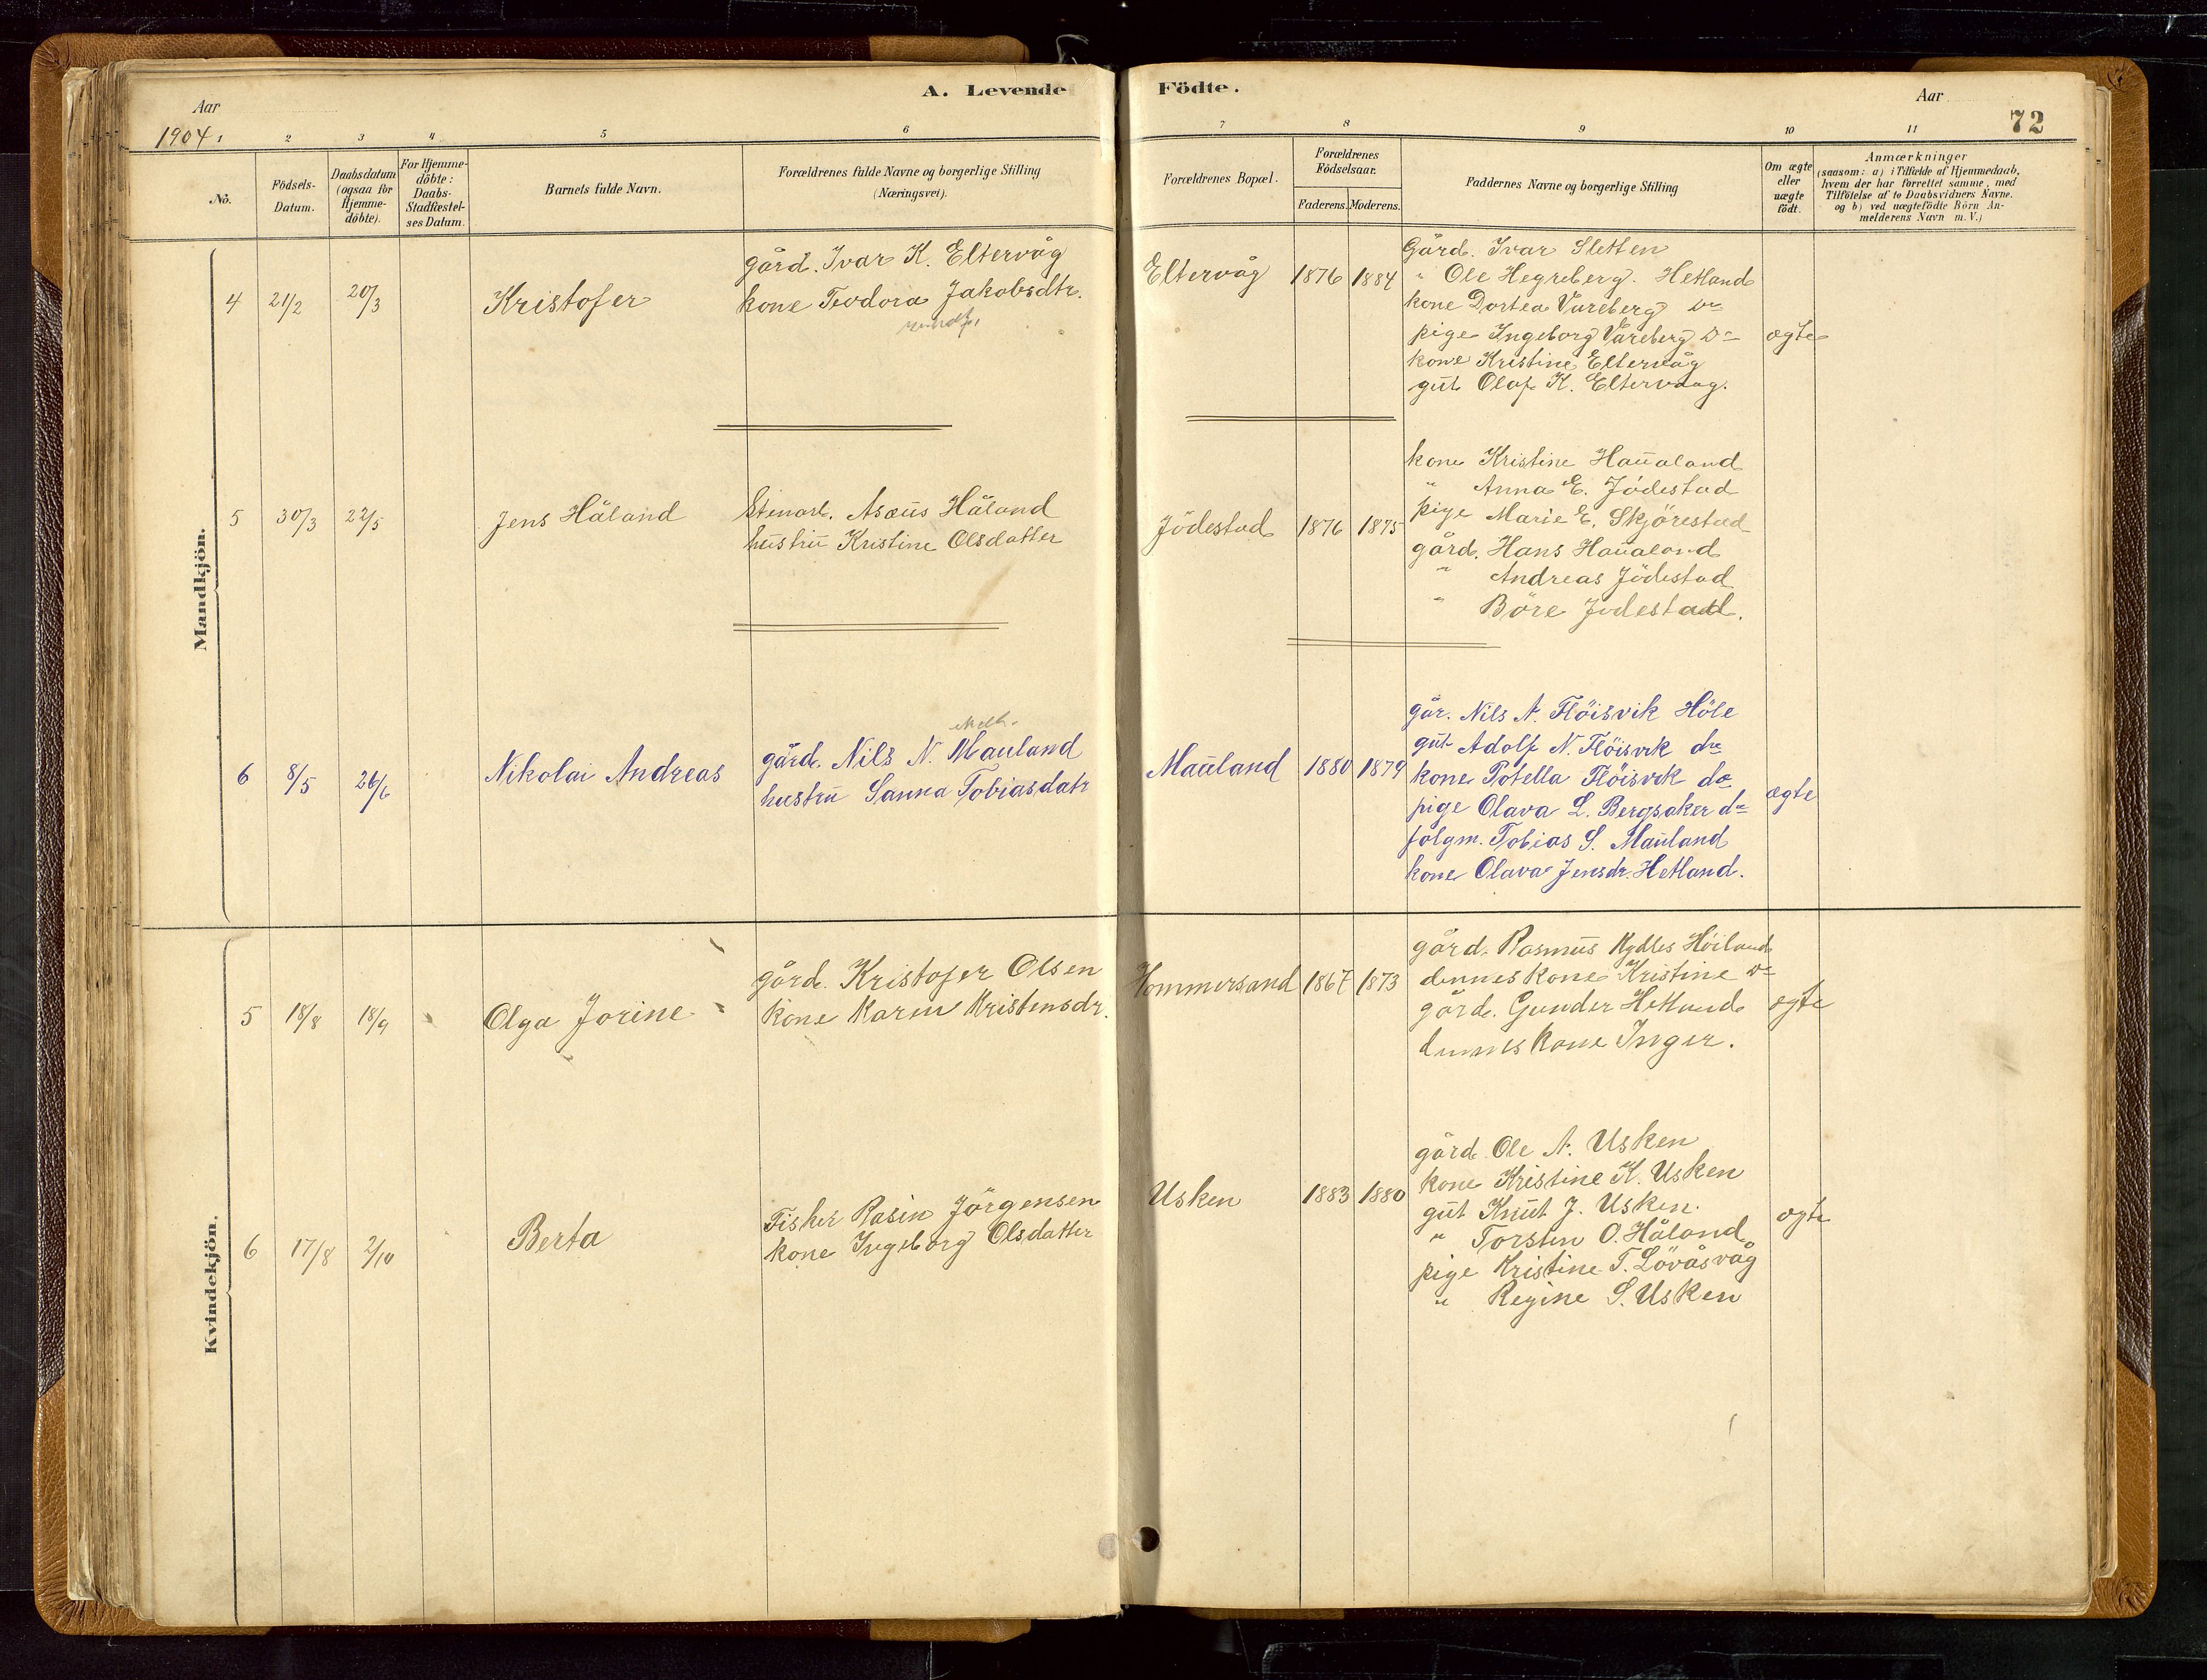 A. Levende Födte.
Aar
Aar
1904.
72
1 2 3 4 5 6 7 8 9 10 11
No.
Födsels-Datum.
Daabsdatum (ogsaa for Hjemme-döbte).
For Hjemme-döbte: Daabs-Stadfæstel-ses Datum.
Barnets fulde Navn.
Forældrenes fulde Navne og borgerlige Stilling (Næringsvei).
Forældrenes Bopæl.
Forældrenes Födselsaar.
Faderens. Moderens.
Faddernes Navne og borgerlige Stilling
Om ægte eller uægte födt.
Anmærkninger
(saasom: a) i Tilfælde af Hjemmedaab,
hvem der har forrettet samme, med
Tilföielse af to Daabsvidners Navne.
og b) ved uægtefödte Börn An-
melderens Navn m. V.)
Mandkjön.
4 21/2 20/3 Kristofer
gård. Ivar K. Eltervåg
kone Teodora Jakobsdtr.
Eltervåg 1876 1884
Gård. Ivar Sletten
" Ole Hegreberg. Hetland
kone Dortea Vareberg Do
pige Ingeborg Våreberg Do
kone Kristine Eltervåg
gut Olaf K. Eltervaag.
ægte
5 30/3 22/5 Jens Håland
Stenarb. Asæus Håland
hustru Kristine Olsdatter
Jödestad 1876 1875
kone Kristine Haualand
" Anna E. Jödestad
pige Marie E. Skjörestad
gård. Hans Haualand
" Andreas Jödestad
" Böre Jödestad.
6 8/5 26/6 Nikolai Andreas
gård. Nils N. Mauland
hustru Sanna Tobiasdatr
Mauland 1880 1879
går. Nils A. Flöisvik Höle
gut Adolf N. Flöisvik do
kone Potella Flöisvik do
pige Olava L. Bergsaker do
folgm. Tobias S. Mauland
kone Olava Jensdr. Hetland.
ægte
Kvindekjön.
5 18/8 18/9 Olga Jorine
gård. Kristofer Olsen
kone Karen Kristensdr.
Hommersand 1867 1873
gård. Rasmus Kydles Höiland
dennes kone Kristine Do
gård. Gunder Hetland
dennes kone Inger.
ægte
6 17/8 2/10 Berta
Fisker Rasin Jörgensen
kone Ingeborg Olsdatter
Usken 1883 1880
gård. Ole A. Usken
kone Kristine K. Usken
gut Knut J. Usken.
" Torsten O. Håland
pige Kristine T. Lövåsvåg
" Regine S. Usken
ægte